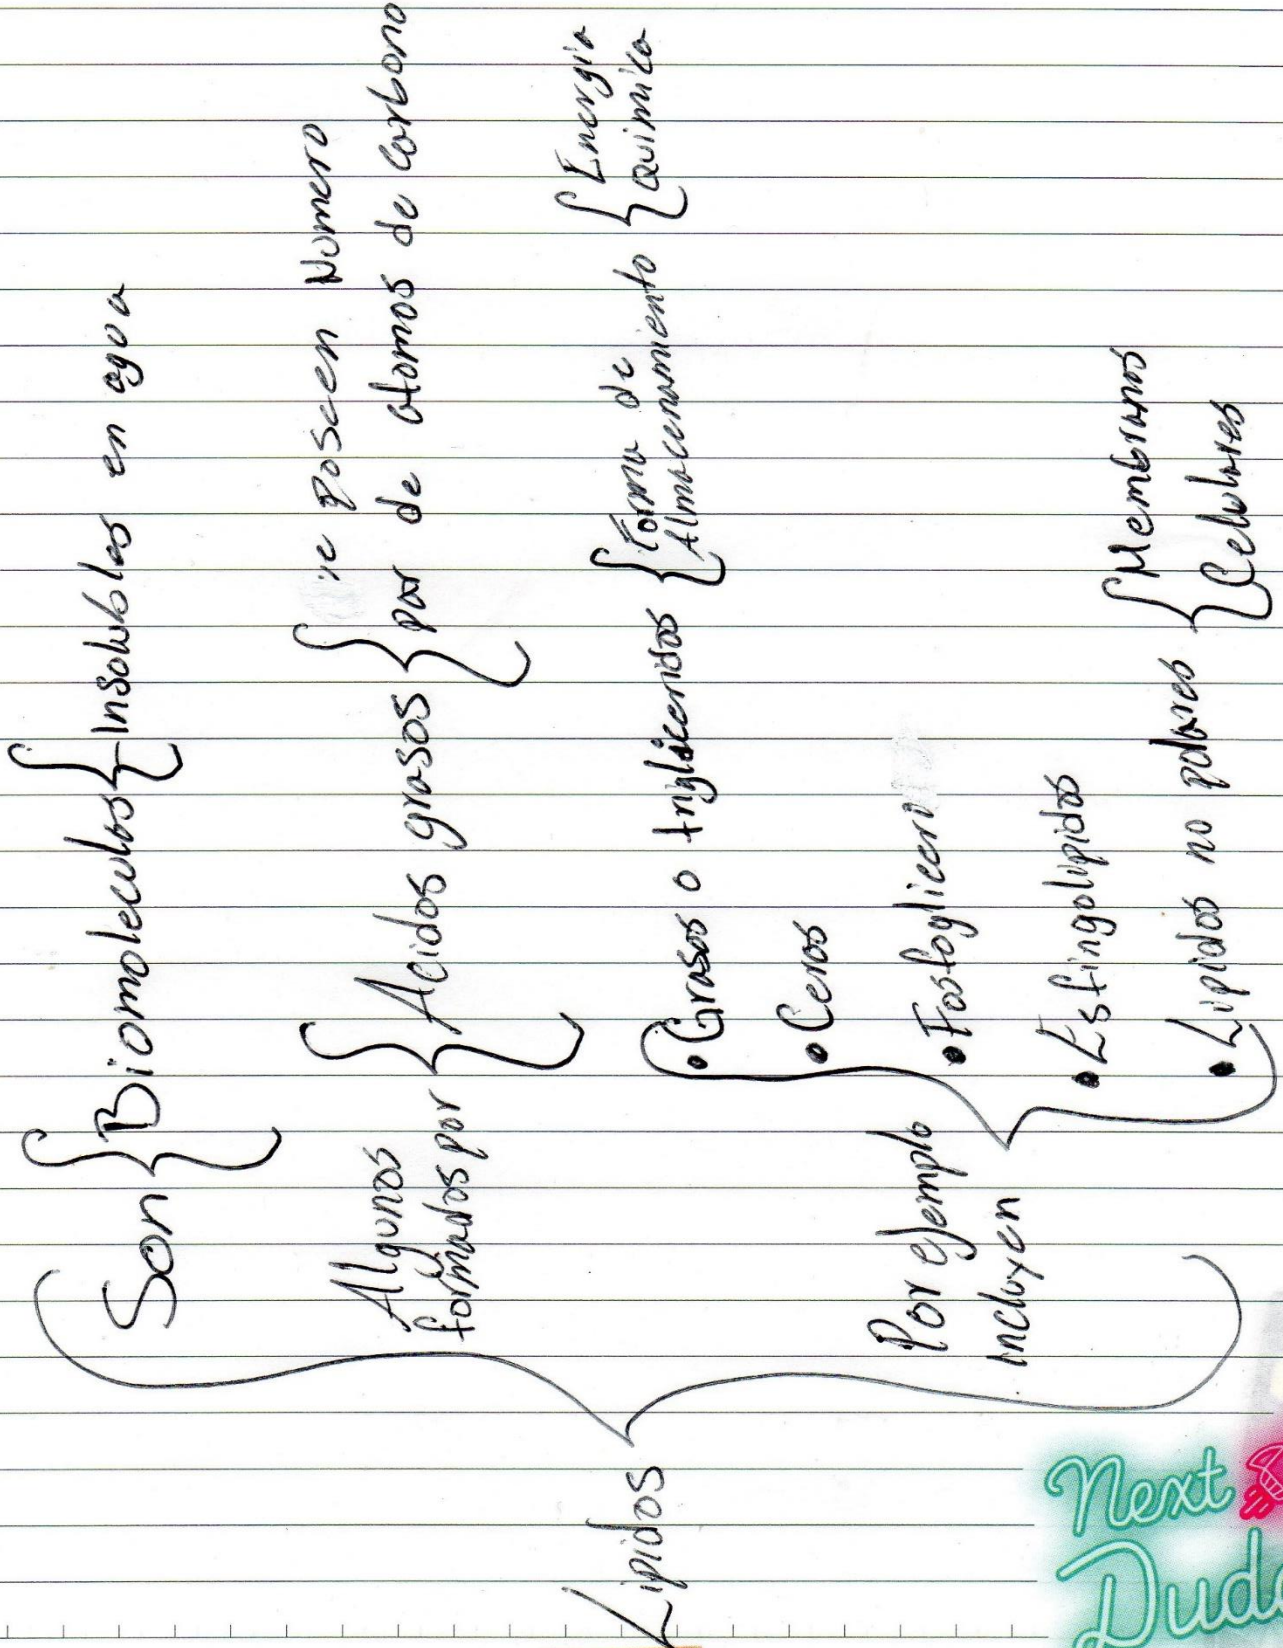 Lipidos
Son
Biomoleculas
Insolublas en agua
Algunos
formados por
Acidos grasos
Poseen Numero
par de atomos de carbono
Por ejemplo
incluyen
• Grasas o trigliceridos
Forma de
Almacenamiento
Energia
Quimica
• Ceras
• Fosfogliceri
• Esfingolipidos
• Lipidos no polares
Membranas
Celulares
Next
Dude